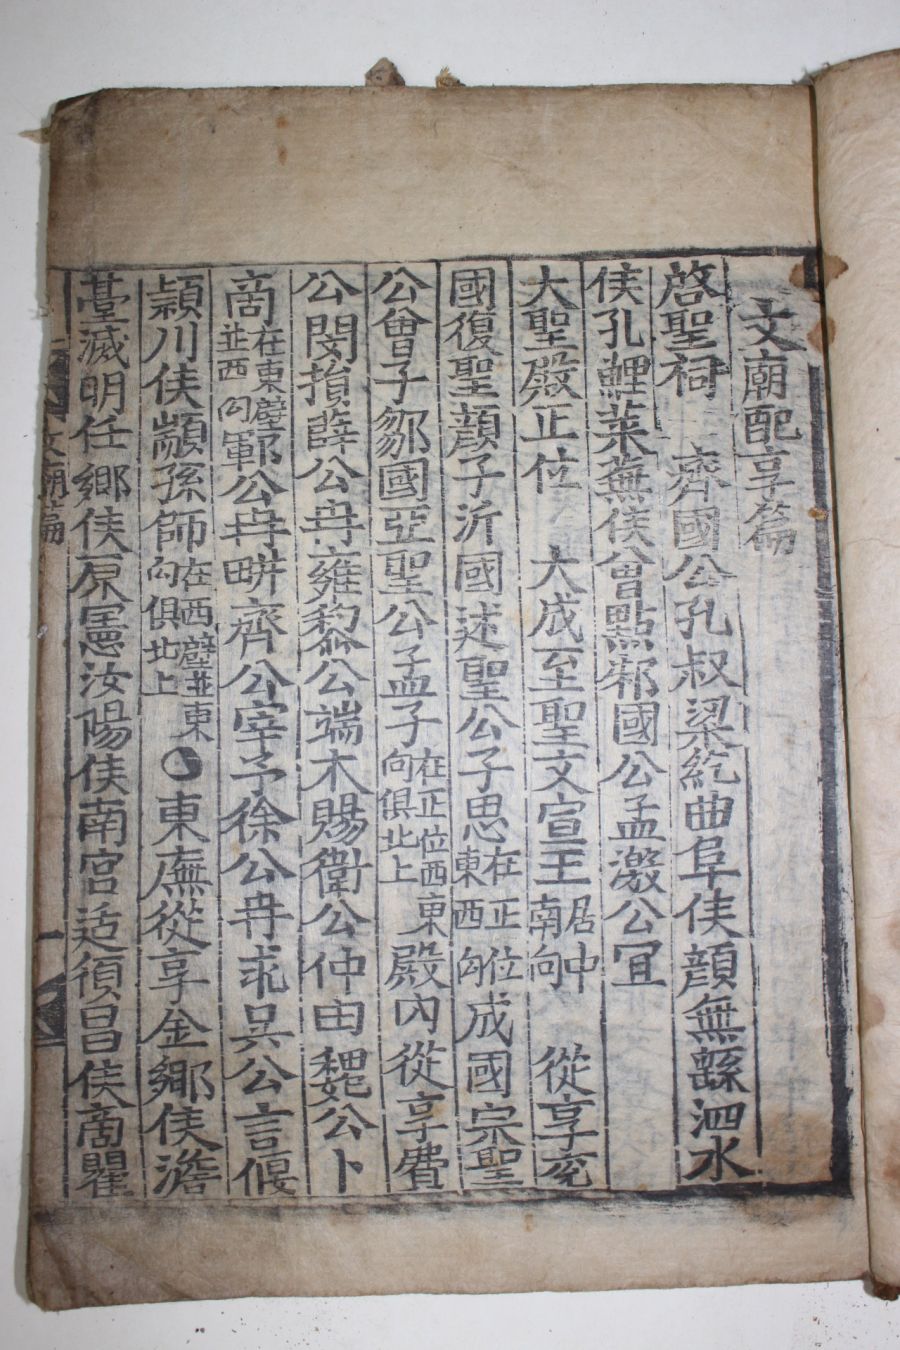 文廟配享篇
啓聖祠 齊國公孔叔梁紇曲阜侯顔無繇泗水
侯孔鯉萊蕪侯曾點邾國公孟激公宜
大聖殿正位 大成至聖文宣王居中南向 從享兖
國復聖顔子沂國述聖公子思在正位東西向成國宗聖
公曾子鄒國亞聖公孟子在正位西東向俱北上殿內從享費
公閔損薛公冉雍黎公端木賜衛公仲由魏公卜
商在東壁並西向鄆公冉畊齊公宰予徐公冉求吳公言偃
頴川侯顓孫師在西壁並東向俱北上東廡從享金鄉侯澹
臺滅明任鄉侯原憲汝陽侯南宮适湏昌侯商瞿
文廟篇
一